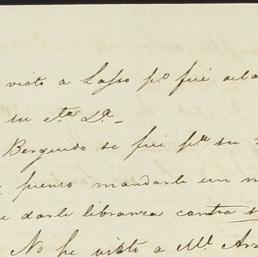 visto a Lasso po fué
su cta Da
Bergundo se fué pa su
pienso mandarle un
e darle libranza contra
No he visto a Mr.